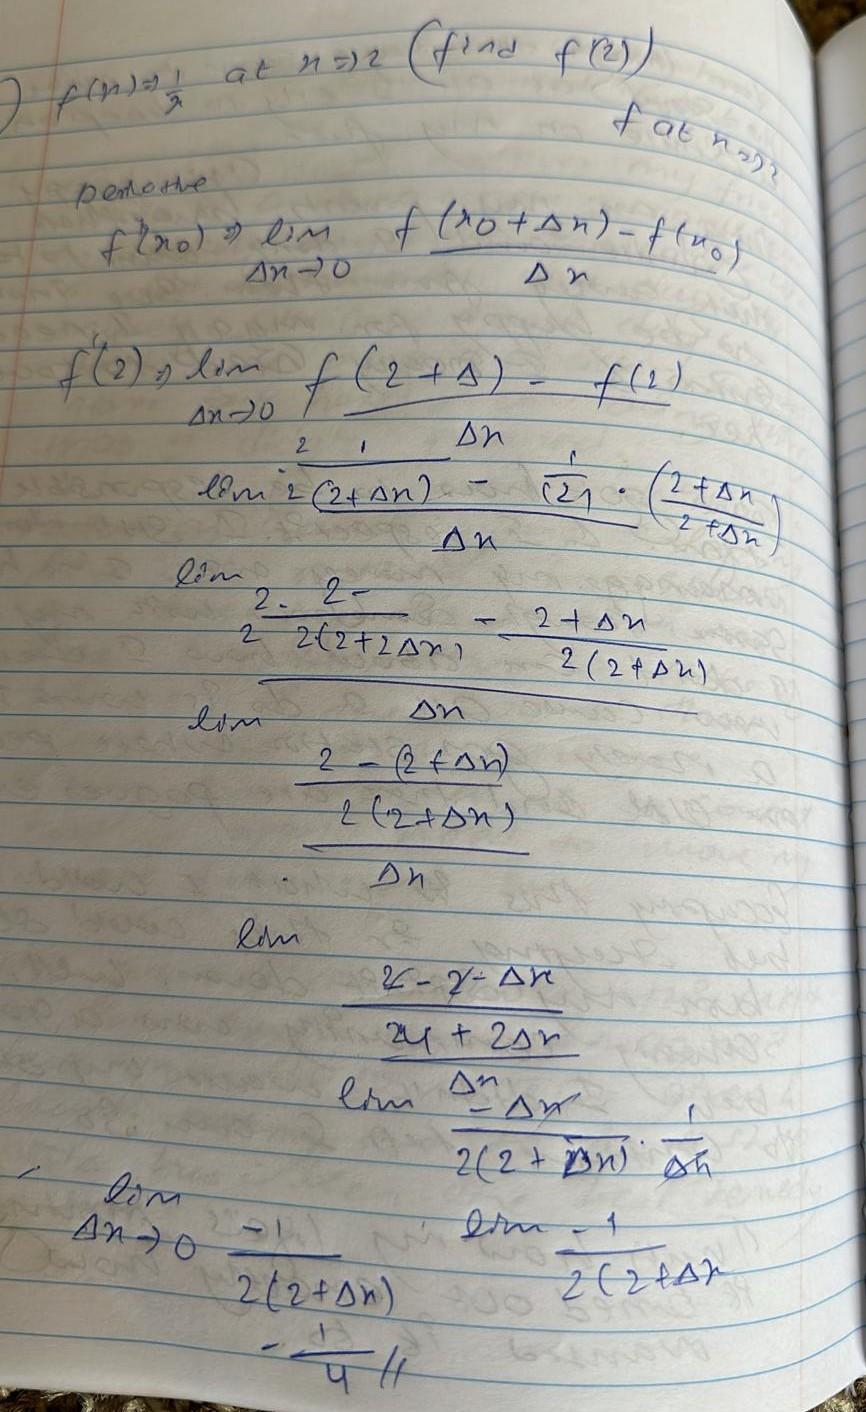 ) f(x) => 1/x at x => 2 (find f(2))
f at x =>2
f'(x0) => lim Δx→0 f(x0 + Δx) - f(x0) / Δx
f'(2) => lim Δx→0 f(2 + Δ) - f(2) / Δx
lim 2/2 · 1/(2+Δx) - 1/(2) · (2+Δx / 2+Δx) / Δx
lim 2/2 · 2-/2(2+2Δx) - 2+Δx/2(2+Δx) / Δx
lim 2 - (2+Δx) / 2(2+Δx) / Δx
lim 2 - 2 - Δx / 4 + 2Δx / Δx
lim -Δx / 2(2+Δx) · 1/Δx
lim Δx→0 -1 / 2(2+Δx) lim -1 / 2(2+Δx
- 1/4 //